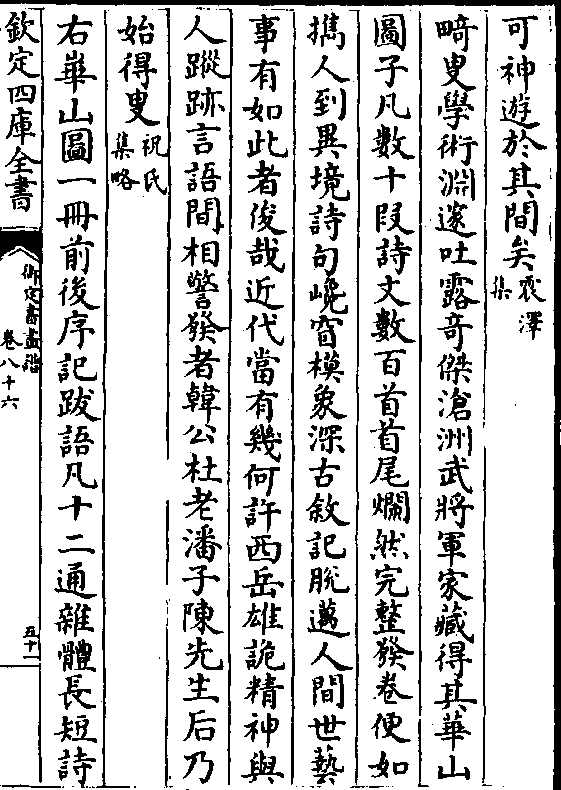 可神遊於其間矣震澤集
畸叟學術淵邃吐露奇傑滄洲武將軍家藏得其華山
圖子凡數十段詩文數百首首尾爛然完整發卷便如
攜人到異境詩句巉窅模象深古敘記脫邁人間世藝
事有如此者俊哉近代當有幾何許西岳雄詭精神與
人蹤跡言語間相警發者韓公杜老潘子陳先生后乃
始得叟祝氏集略
右華山圖一冊前後序記跋語凡十二通雜體長短詩
欽定四庫全書
御定書畫譜
卷八十六
五十一